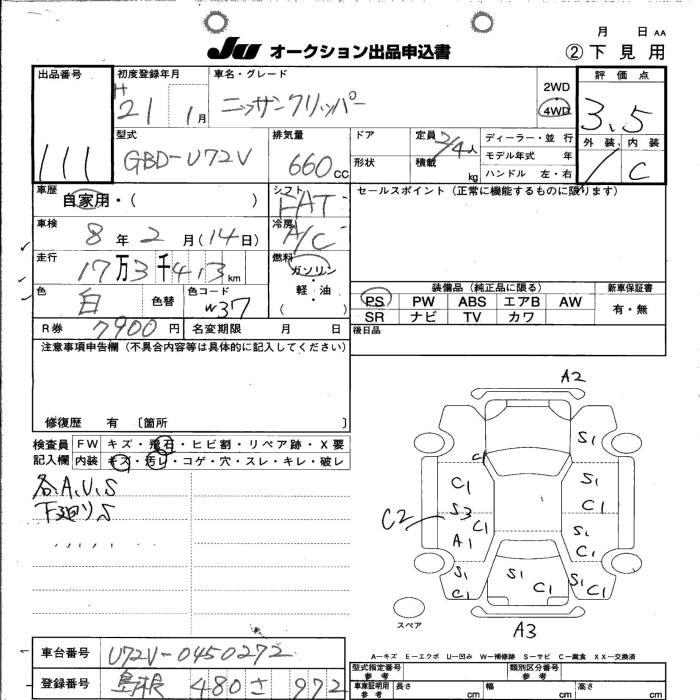 月 日 AA
JU オークション出品申込書 ②下見用
出品番号 初度登録年月 車名・グレード 評価点
H 21 1月 ニッサンクリッパー 2WD 4WD 3.5
111 型式 排気量 ドア 定員 2/4人 ディーラー・並行 外装 内装
GBD-U72V 660cc 形状 積載 kg モデル年式 年 C
ハンドル 左・右
車歴 自家用・( ) シフト FAT セールスポイント (正常に機能するものに限ります)
車検 8年2月(14日) 冷房 A/C
走行 17万3千413km 燃料 ガソリン
軽・油
( )
色 白 色替 色コード W37 装備品 (純正品に限る) 新車保証書
PS PW ABS エアB AW 有・無
SR ナビ TV カワ
R券 7900円 名変期限 月 日 後日品
注意事項申告欄 (不具合内容等は具体的に記入してください)
修復歴 有 〔箇所 〕
検査員 FW キズ・飛石・ヒビ割・リペア跡・X要
記入欄 内装 キズ・汚レ・コゲ・穴・スレ・キレ・破レ
各、A、U、S
下廻りS
A2
S1
C1 S1
C1 C1
C2 S3 C1 S1
A1 C1
S1 S1 S1
C1 C1 C1
スペア
A3
A-キズ E-エクボ U-凹み W-補修跡 S-サビ C-腐食 XX-交換済
車台番号 U72V-0450272 型式指定番号 参考 類別区分番号 参考
登録番号 島根 480 さ 972 車庫証明用 参考 長さ cm 幅 cm 高さ cm